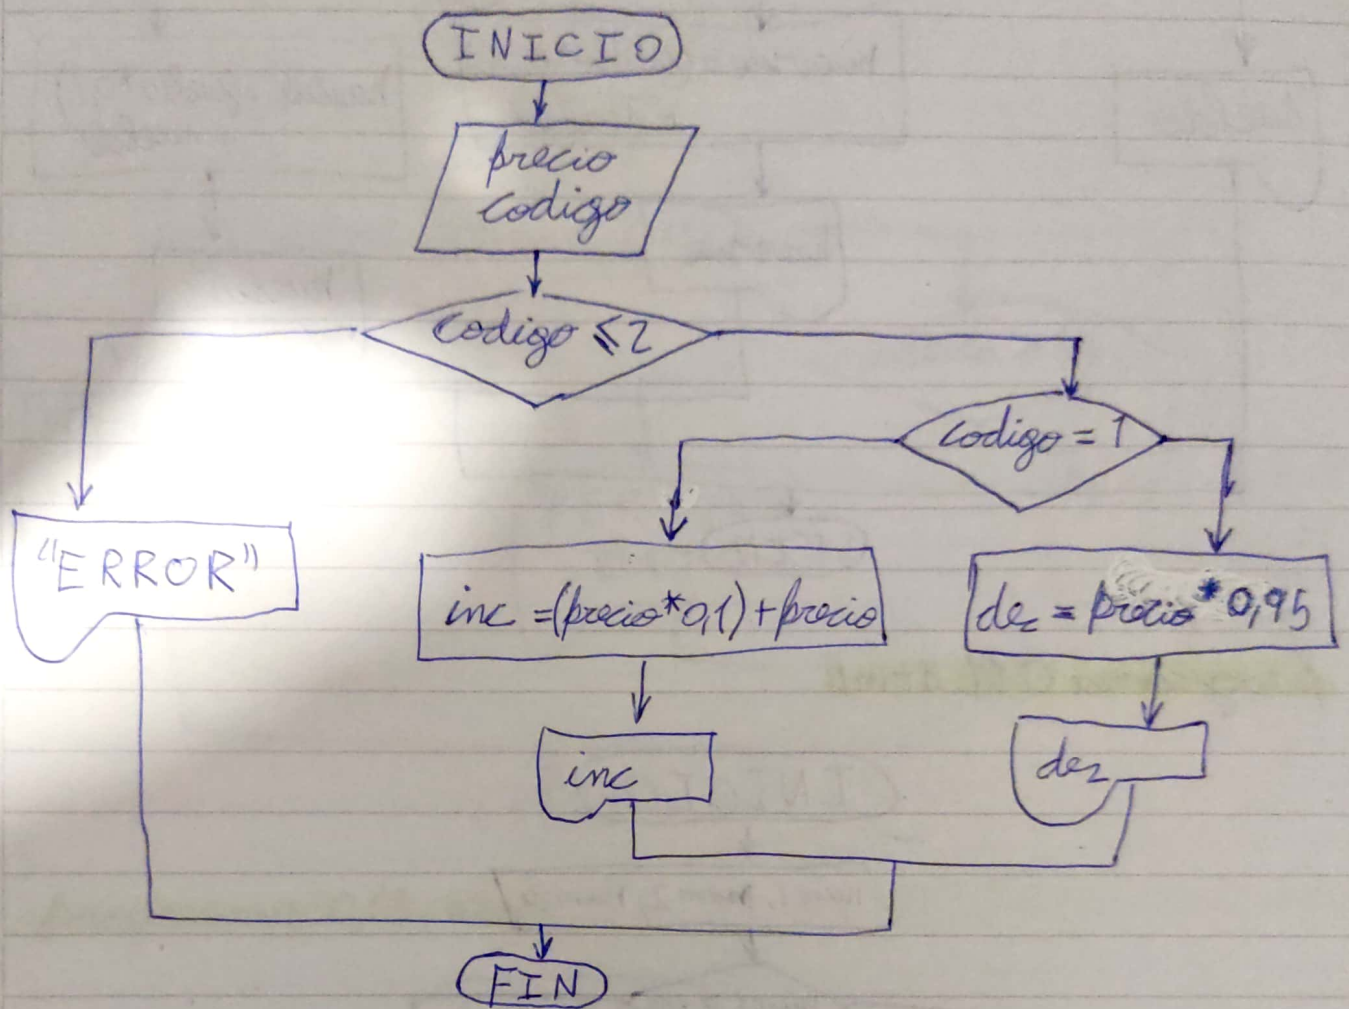 INICIO
precio
codigo
codigo ≤2
codigo = 1
"ERROR"
inc =(precio*0,1)+precio
des = precio*0,95
inc
des
FIN